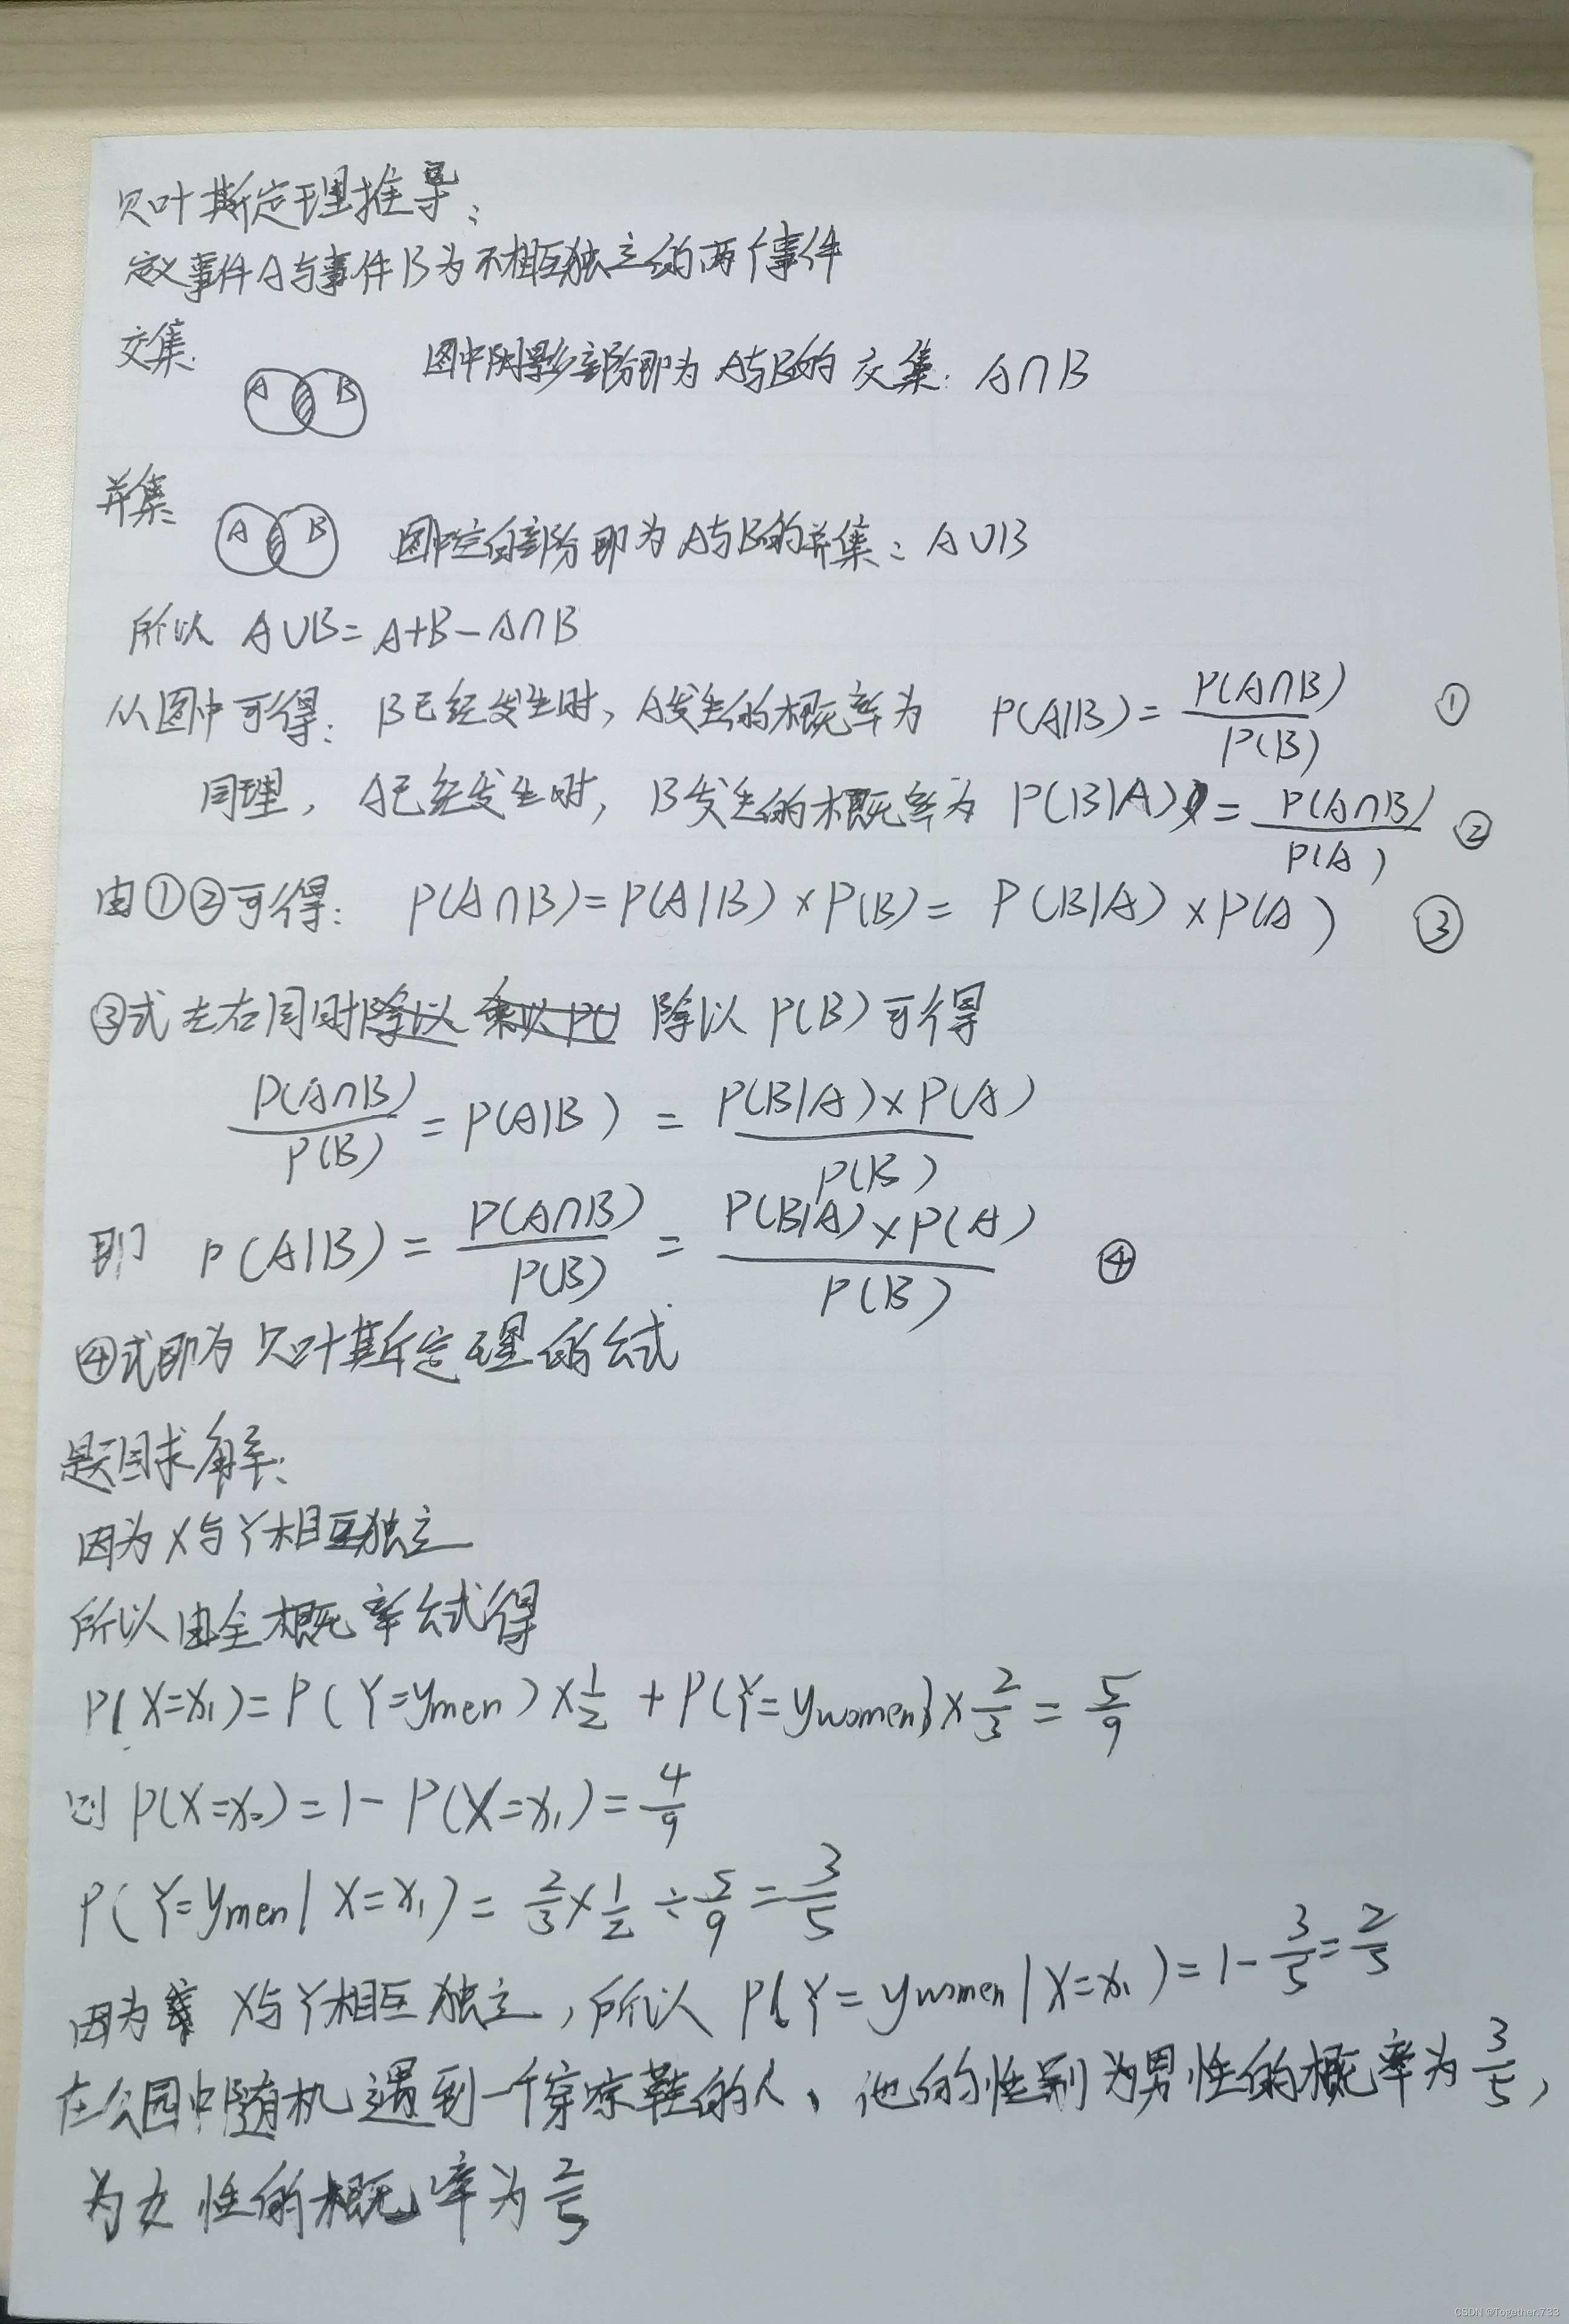 贝叶斯定理推导：
定义事件A与事件B为不相互独立的两个事件
交集：
A B 图中阴影部分即为A与B的交集：A∩B
并集：
A B 图中空白部分即为A与B的并集：A∪B
所以 A∪B=A+B-A∩B
从图中可得：B已经发生时，A发生的概率为 P(A|B)=P(A∩B)/P(B) ①
同理，A已经发生时，B发生的概率为 P(B|A)=P(A∩B)/P(A) ②
由①②可得：P(A∩B)=P(A|B)×P(B)=P(B|A)×P(A) ③
③式左右同时除以 乘以P( 除以P(B)可得
P(A∩B)/P(B)=P(A|B)=P(B|A)×P(A)/P(B)
即 P(A|B)=P(A∩B)/P(B)=P(B|A)×P(A)/P(B) ④
④式即为贝叶斯定理的公式
题目求解：
因为X与Y相互独立
所以由全概率公式得
P(X=x₁)=P(Y=ymen)×1/2+P(Y=ywomen)×2/3=5/9
则P(X=x₂)=1-P(X=x₁)=4/9
P(Y=ymen|X=x₁)=2/3×1/2÷5/9=3/5
因为 X与Y相互独立，所以 P(Y=ywomen|X=x₁)=1-3/5=2/5
在公园中随机遇到一个穿凉鞋的人，他的性别为男性的概率为3/5，
为女性的概率为2/5
CSDN @Together.733